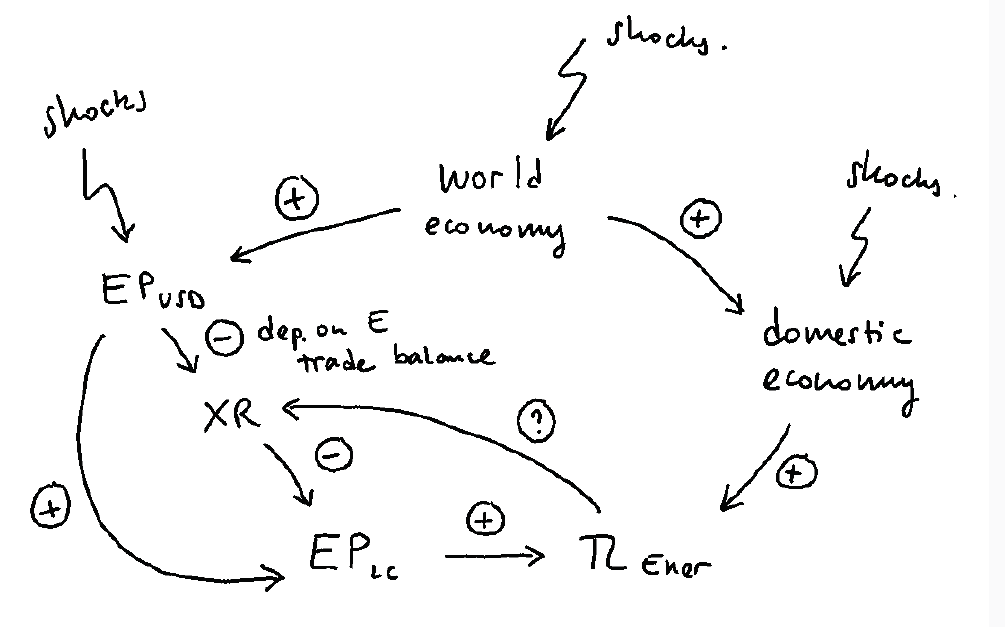 shocks.
shocks
world
economy
shocks.
+
+
EP USD
- dep. on E
trade balance
domestic
economy
XR
?
-
+
+
+
EP LC
π Ener